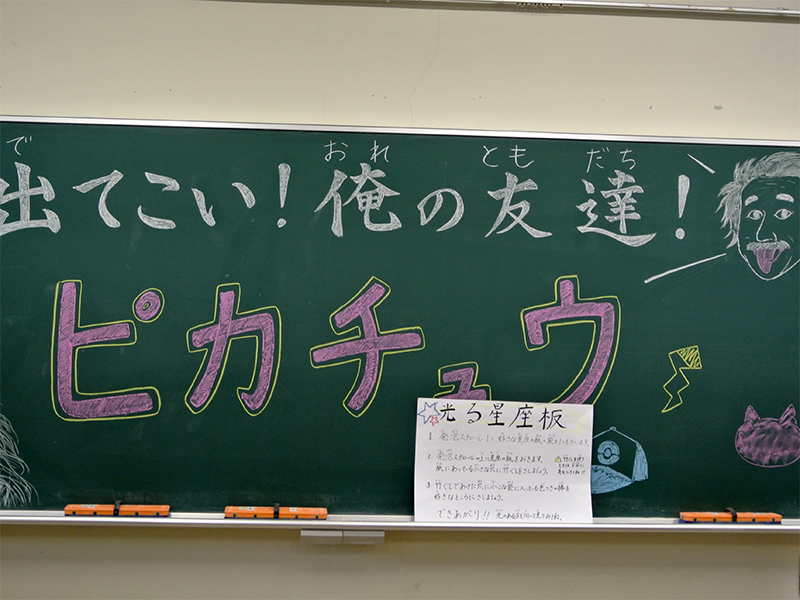 で おれ とも だち
出てこい！俺の友達！
ピカチュウ
光る星座板
1. 発泡スチロールに好きな星座の紙の袋を
2. 発泡スチロールの上に星座の紙をおきます。
紙にあいている小さな穴に竹ぐしをさしましょう。
3. 竹ぐしであけた穴に小さな袋に入っている色つきの棒を
好きなところにさしましょう。
できあがり!!